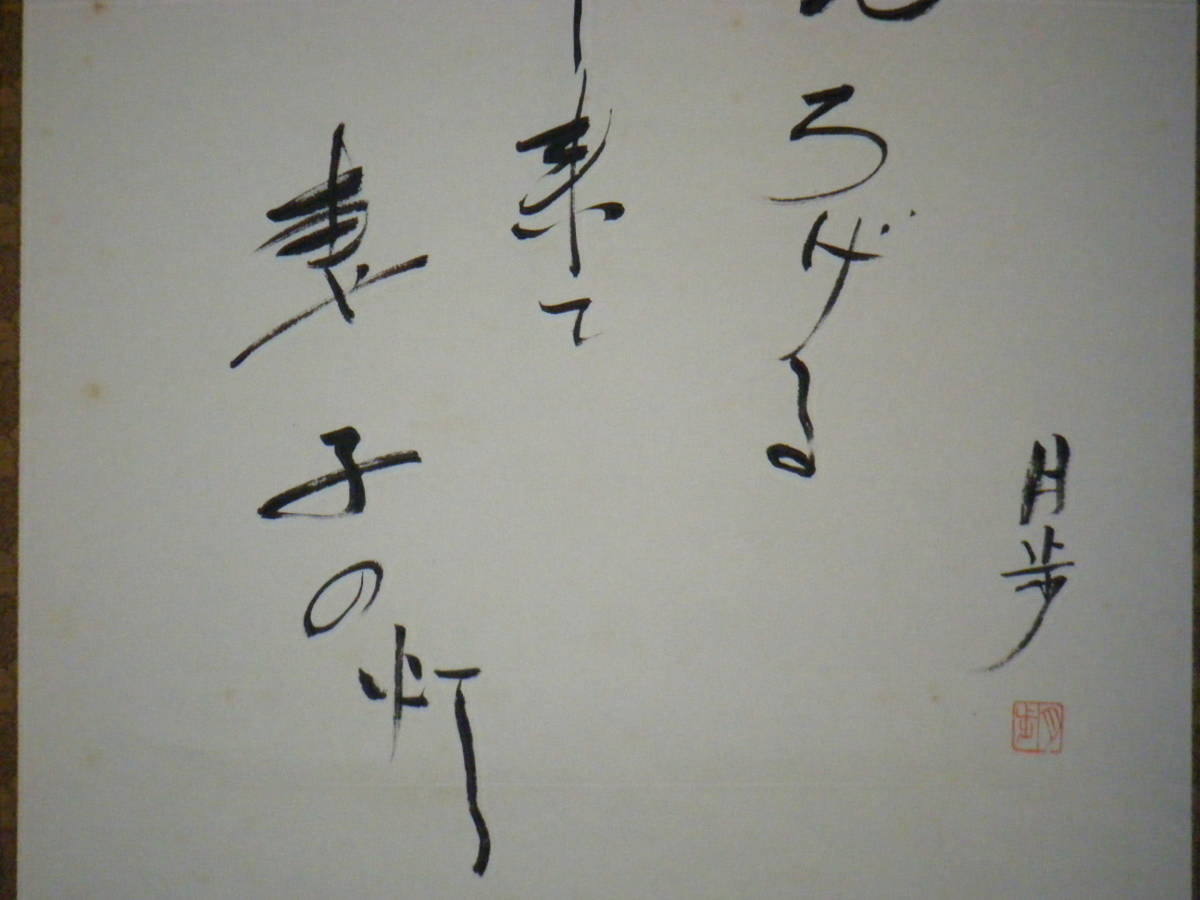 月歩
月歩
ろげる
来て
妻子の灯